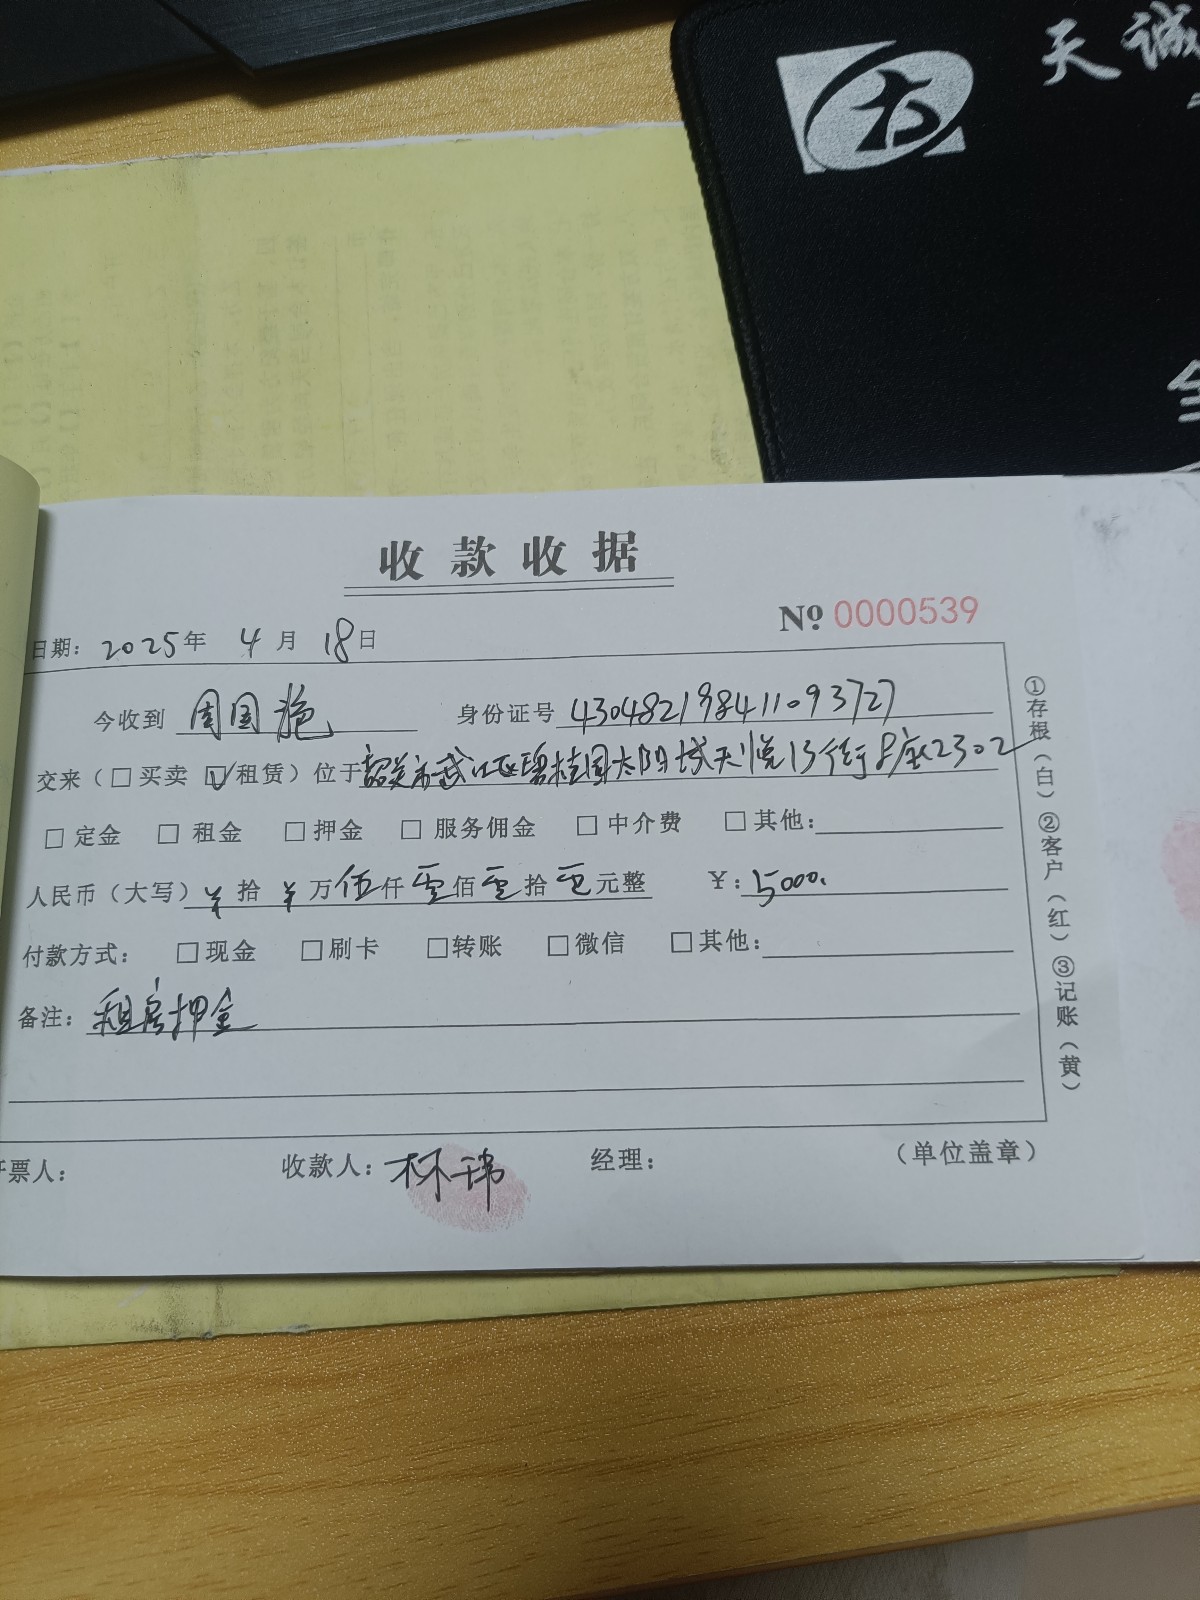 天诚
全
收款收据
№ 0000539
日期: 2025年 4月 18日
今收到 周国艳 身份证号 430482198411093727
交来(□买卖 ☑租赁)位于韶关市武江区碧桂园太阳城天悦13街8座2302
□定金 □租金 □押金 □服务佣金 □中介费 □其他:
人民币(大写)¥拾¥万伍仟零佰零拾零元整 ¥:5000.
付款方式: □现金 □刷卡 □转账 □微信 □其他:
备注: 租房押金
票人: 收款人: 林玮 经理: (单位盖章)
①存根(白)②客户(红)③记账(黄)